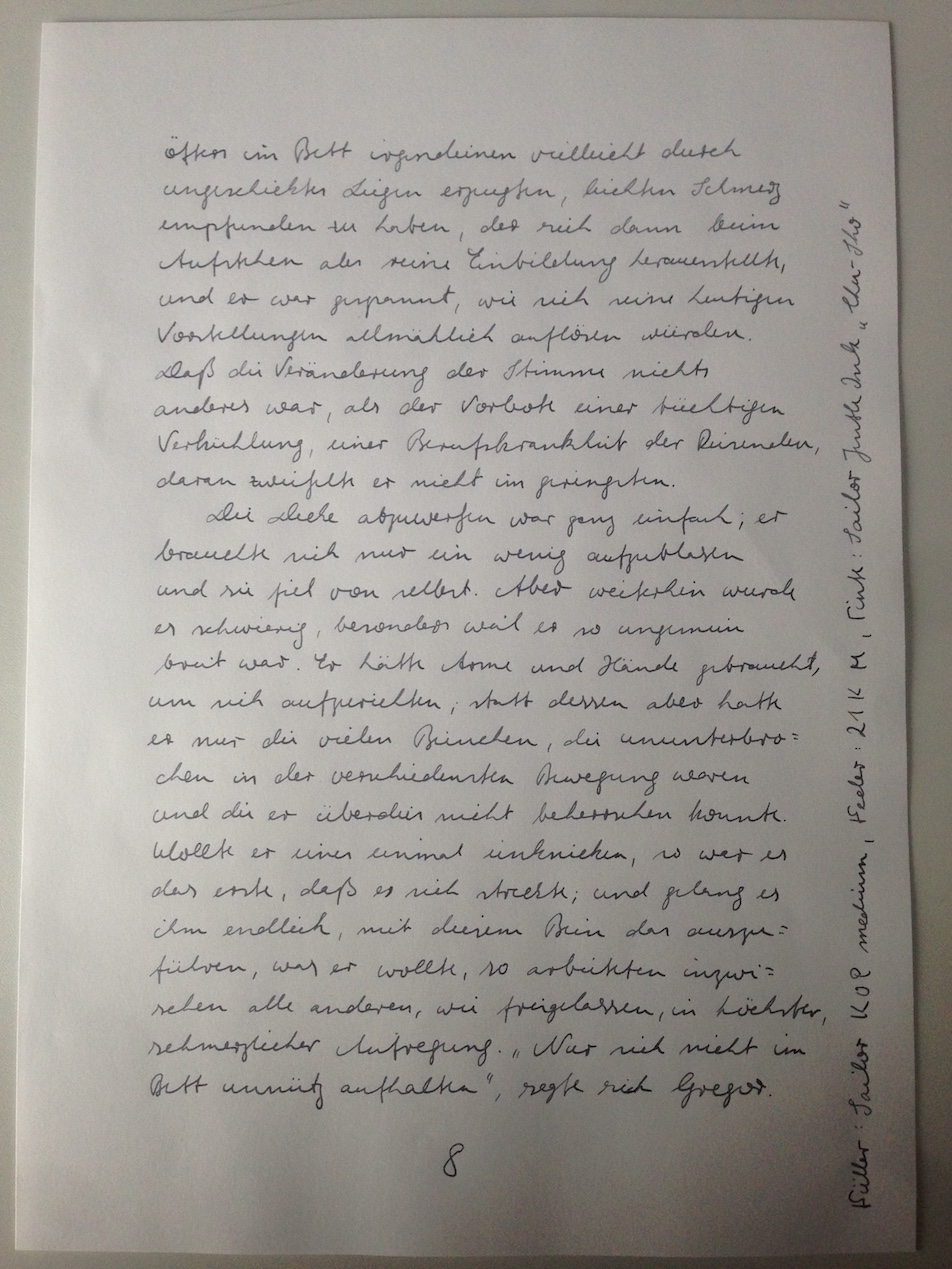 öfters im Bett irgendeinen vielleicht durch
ungeschicktes Liegen erzeugten, leichten Schmerz
empfunden zu haben, der sich dann beim
Aufstehen als reine Einbildung herausstellte,
und er war gespannt, wie sich seine heutigen
Vorstellungen allmählich auflösen würden.
Daß die Veränderung der Stimme nichts
anderes war, als der Vorbote einer tüchtigen
Verkühlung, einer Berufskrankheit der Reisenden,
daran zweifelte er nicht im geringsten.
Die Decke abzuwerfen war ganz einfach; er
brauchte sich nur ein wenig aufzublasen
und sie fiel von selbst. Aber weiterhin wurde
es schwierig, besonders weil er so ungemein
breit war. Er hätte Arme und Hände gebraucht,
um sich aufzurichten; statt dessen aber hatte
er nur die vielen Beinchen, die ununterbro=
chen in der verschiedensten Bewegung waren
und die er überdies nicht beherrschen konnte.
Wollte er eines einmal einknicken, so war es
das erste, daß es sich streckte; und gelang es
ihm endlich, mit diesem Bein das auszu=
führen, was er wollte, so arbeiteten inzwi=
schen alle anderen, wie freigelassen, in höchster,
schmerzlicher Aufregung. „Nur sich nicht im
Bett unnütz aufhalten", sagte sich Gregor.
8
Füller: Sailor KOP medium, Feder: 21K M, Tinte: Sailor Jentle Ink „Chu-Shu"